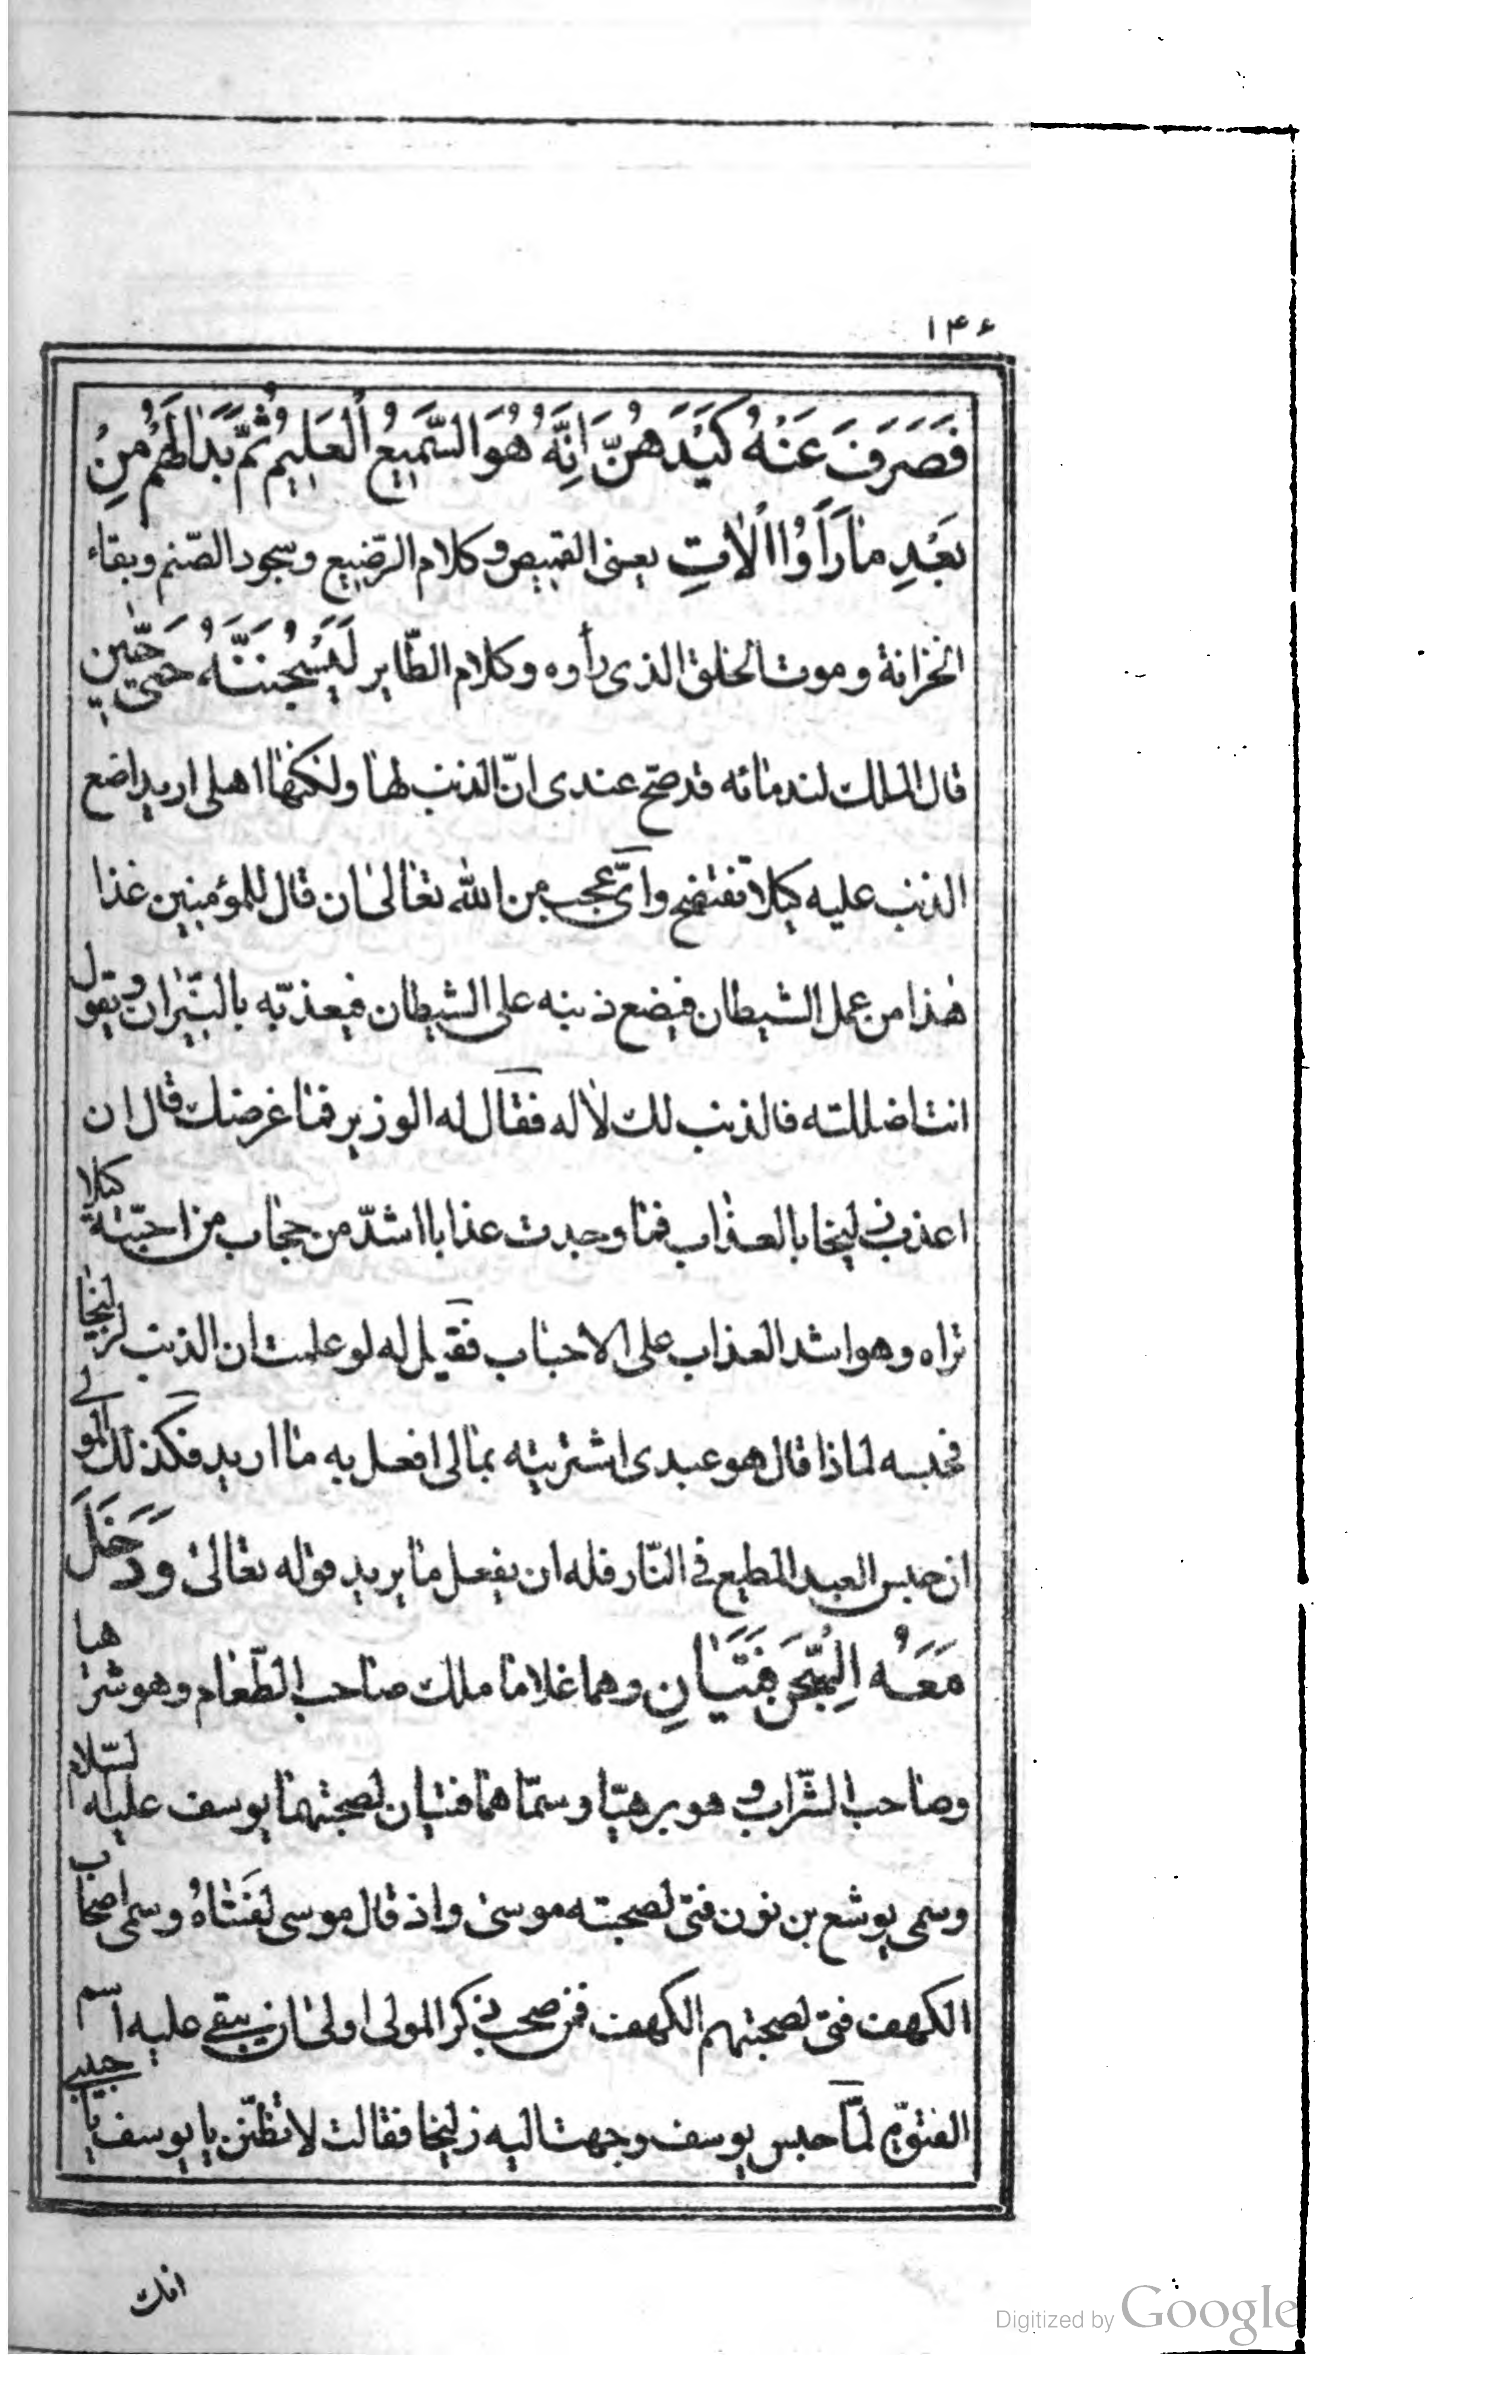 ۱۴۶
فَصَرَفَ عَنْهُ كَيْدَهُنَّ اِنَّهُ هُوَ السَّمِيعُ الْعَلِيمُ ثُمَّ بَدَالَهُمْ مِنْ
بَعْدِ مٰارَاَوُا الْاٰتِ يعنى القميص وكلام الرّضيع وسجود الصّنم وبقاء
الخزانة وموت الخلق الذى رأوه وكلام الطّاير لَيَسْجُنُنَّهُ حَتّى حِينٍ
قال الملك لندمائه قد صحّ عندى انّ الذنب لها ولكنها اهلى اريد اضع
الذنب عليه كيلا تفتضح واىّ عجب من الله تعالى ان قال للمؤمنين غذا
هذا من عمل الشيطان فيضع ذنبه على الشيطان فيعذبّه بالنيّران ويقول
انت اضللته فالذنب لك لا له فقال له الوزير فما غرضك قال ان
اعذب زليخا بالعذاب فما وجدت عذابا اشدّ من حجاب من احبّته كيلا
تراه وهو اشد العذاب على الاحباب فقيل له لو علمت ان الذنب لزليخا
فحبسه لماذا قال هو عبدى اشتريته بمالى افعل به ما اريد فكذلك المولى
ان حبس العبد المطيع فى النّار فله ان يفعل ما يريد قوله تعالى وَدَخَلَ
مَعَهُ السِّجْنَ فَتَيٰانِ وهما غلاما ملك صاحب الطّعام وهو شرهيا
وصاحب الشّراب وهو برهيّا وسمّاهما فتيان لصحبتهما يوسف عليه السّلام
وسمى يوشع بن نون فتى لصحبته موسى واذ قال موسى لفتاهُ وسمى اصحاب
الكهف فتى لصحبتهم الكهف فمن صحب ذكر المولى اولى ان يبقى عليه اسم
الفتوّة لمّا حبس يوسف وجهت اليه زليخا فقالت لا تظنّن يا يوسف يا حبيبى
انك
Digitized by Google